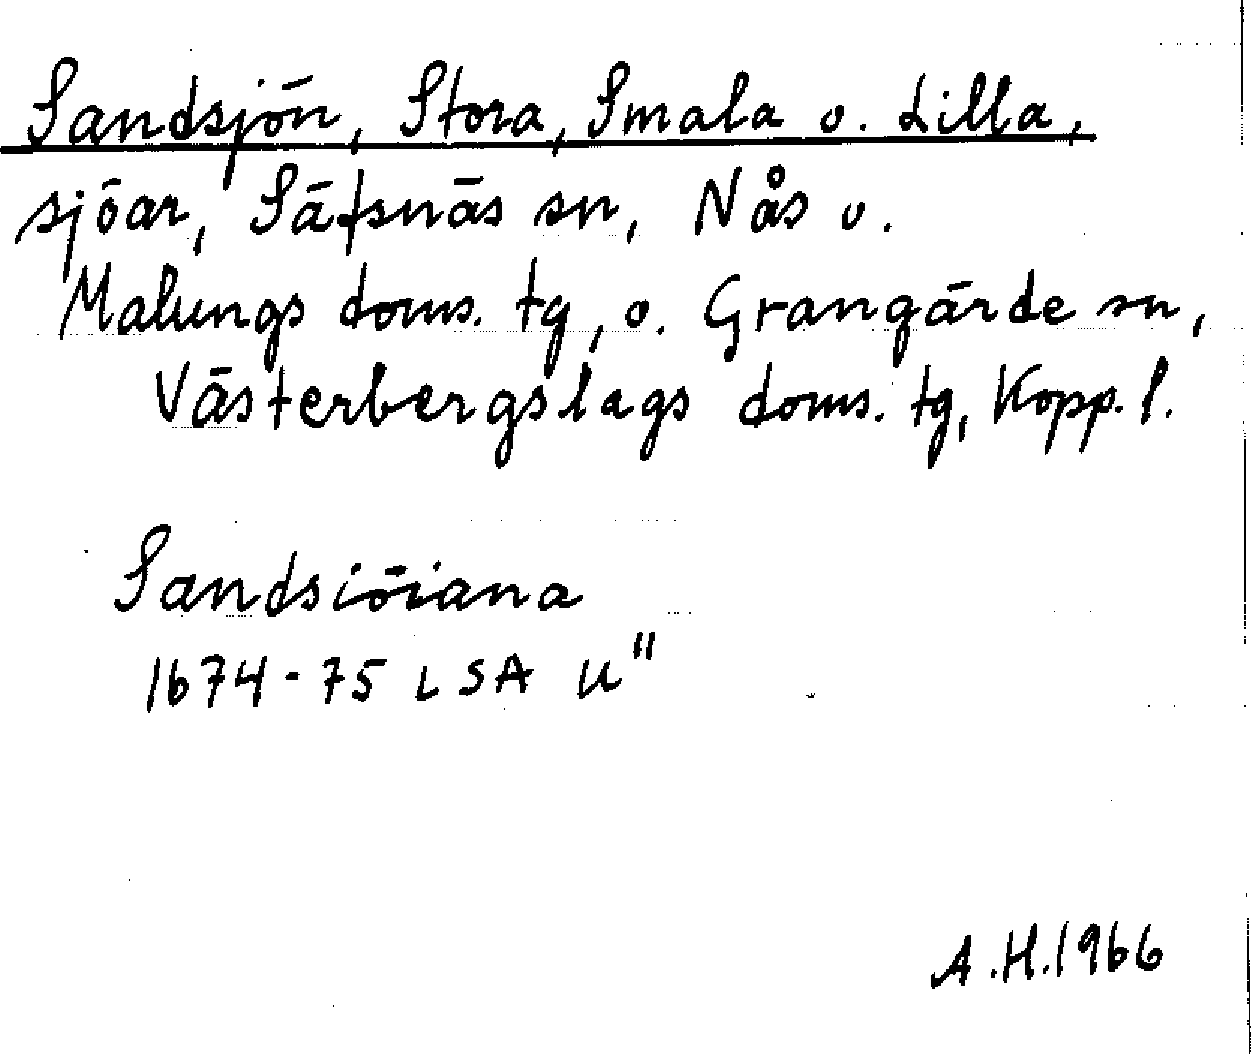 Sandsjön, Stora, Smala o. Lilla,
sjöar, Säfsnäs sn, Nås o.
Malungs doms. tg, o. Grangärde sn,
Västerbergslags doms. tg, Kopp. l.
Sandsiöiana
1674-75 LSA U"
A.H.1966